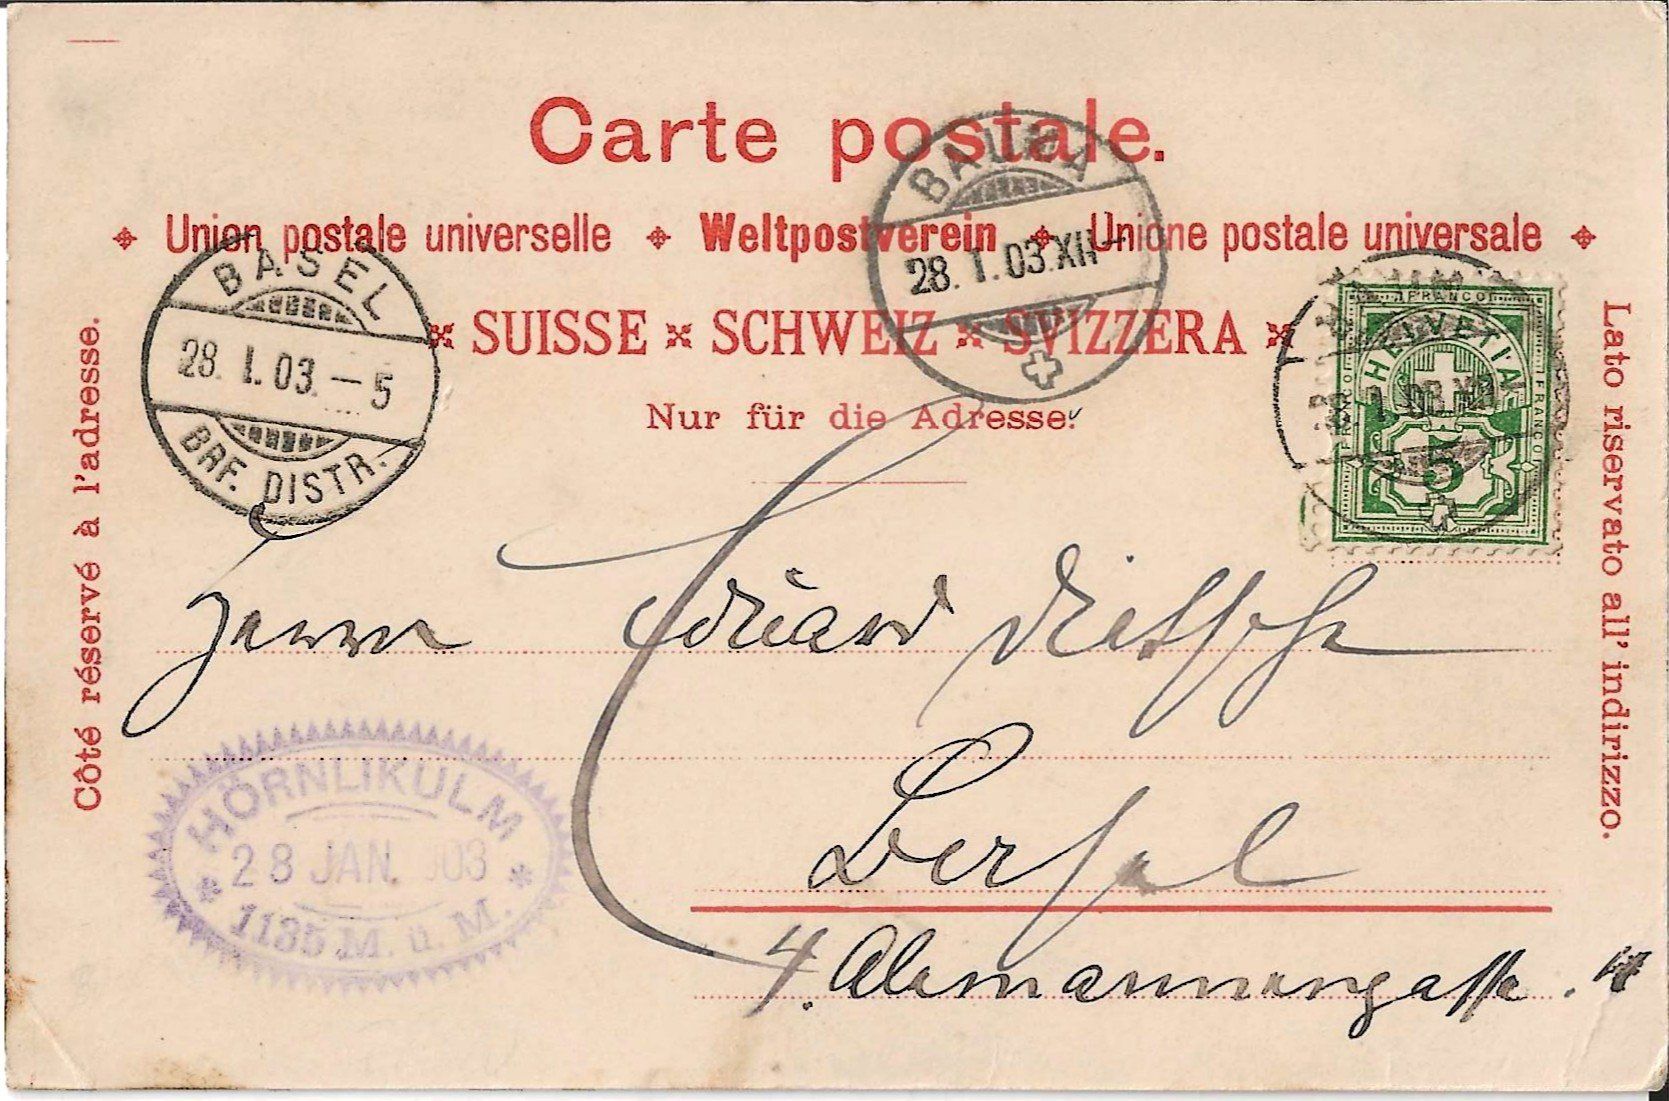 Carte postale.
Union postale universelle Weltpostverein Unione postale universale
SUISSE SCHWEIZ SVIZZERA
Nur für die Adresse.
Côté réservé à l'adresse.
Lato riservato all' indirizzo.
BASEL
28. I. 03. – 5
BRF. DISTR.
BAUMA
28. I. 03. XII –
FRANCO
HELVETIA
FRANCO
FRANCO
5
Herrn Eduard
Basel
4. Alemannengasse. 4
HÖRNLIKULM
28 JAN. 903
1135 M. ü. M.